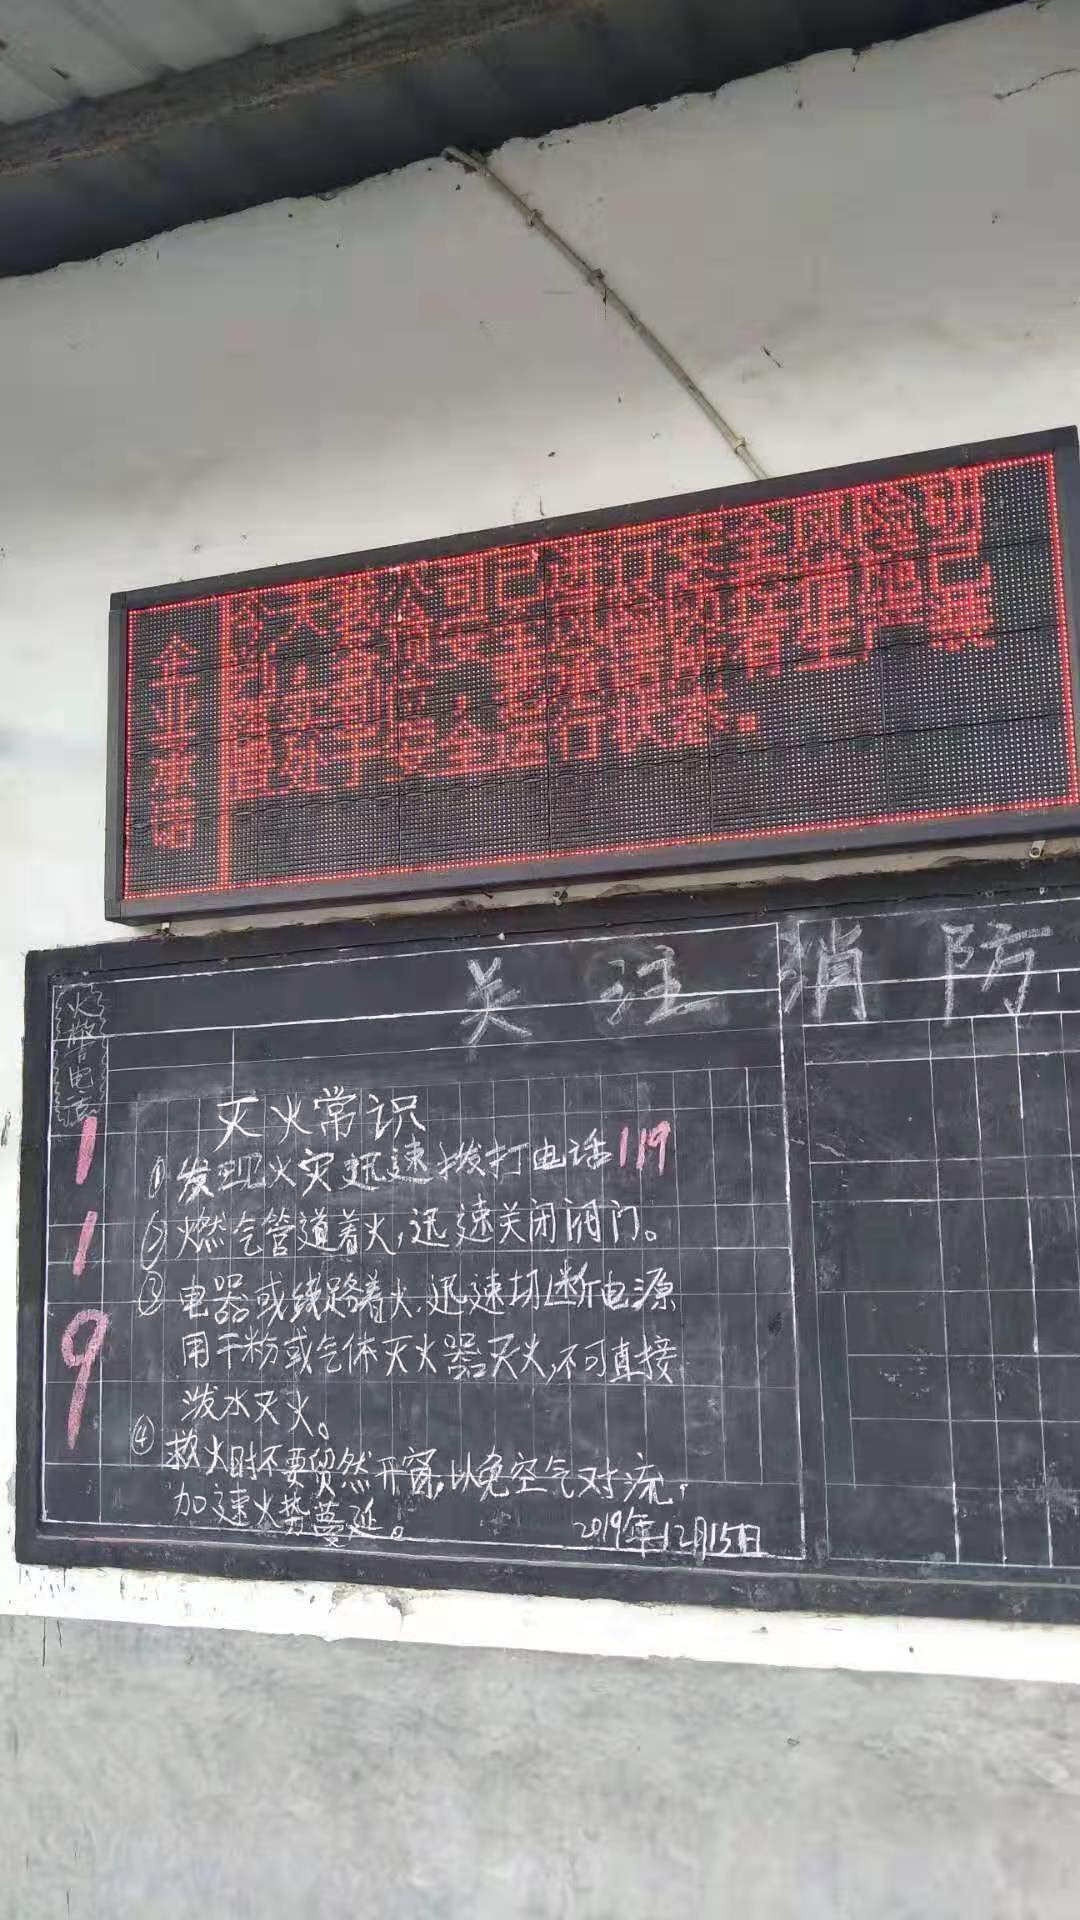 企业承诺
今天我公司已进行安全风险研
处于安全运行状态。
关注消防
火警电话
119
灭火常识
①发现火灾迅速拨打电话119
②燃气管道着火,迅速关闭阀门。
③电器或线路着火,迅速切断电源
用干粉或气体灭火器灭火,不可直接
泼水灭火。
④救火时不要贸然开窗,以免空气对流,
加速火势蔓延。
2019年12月15日